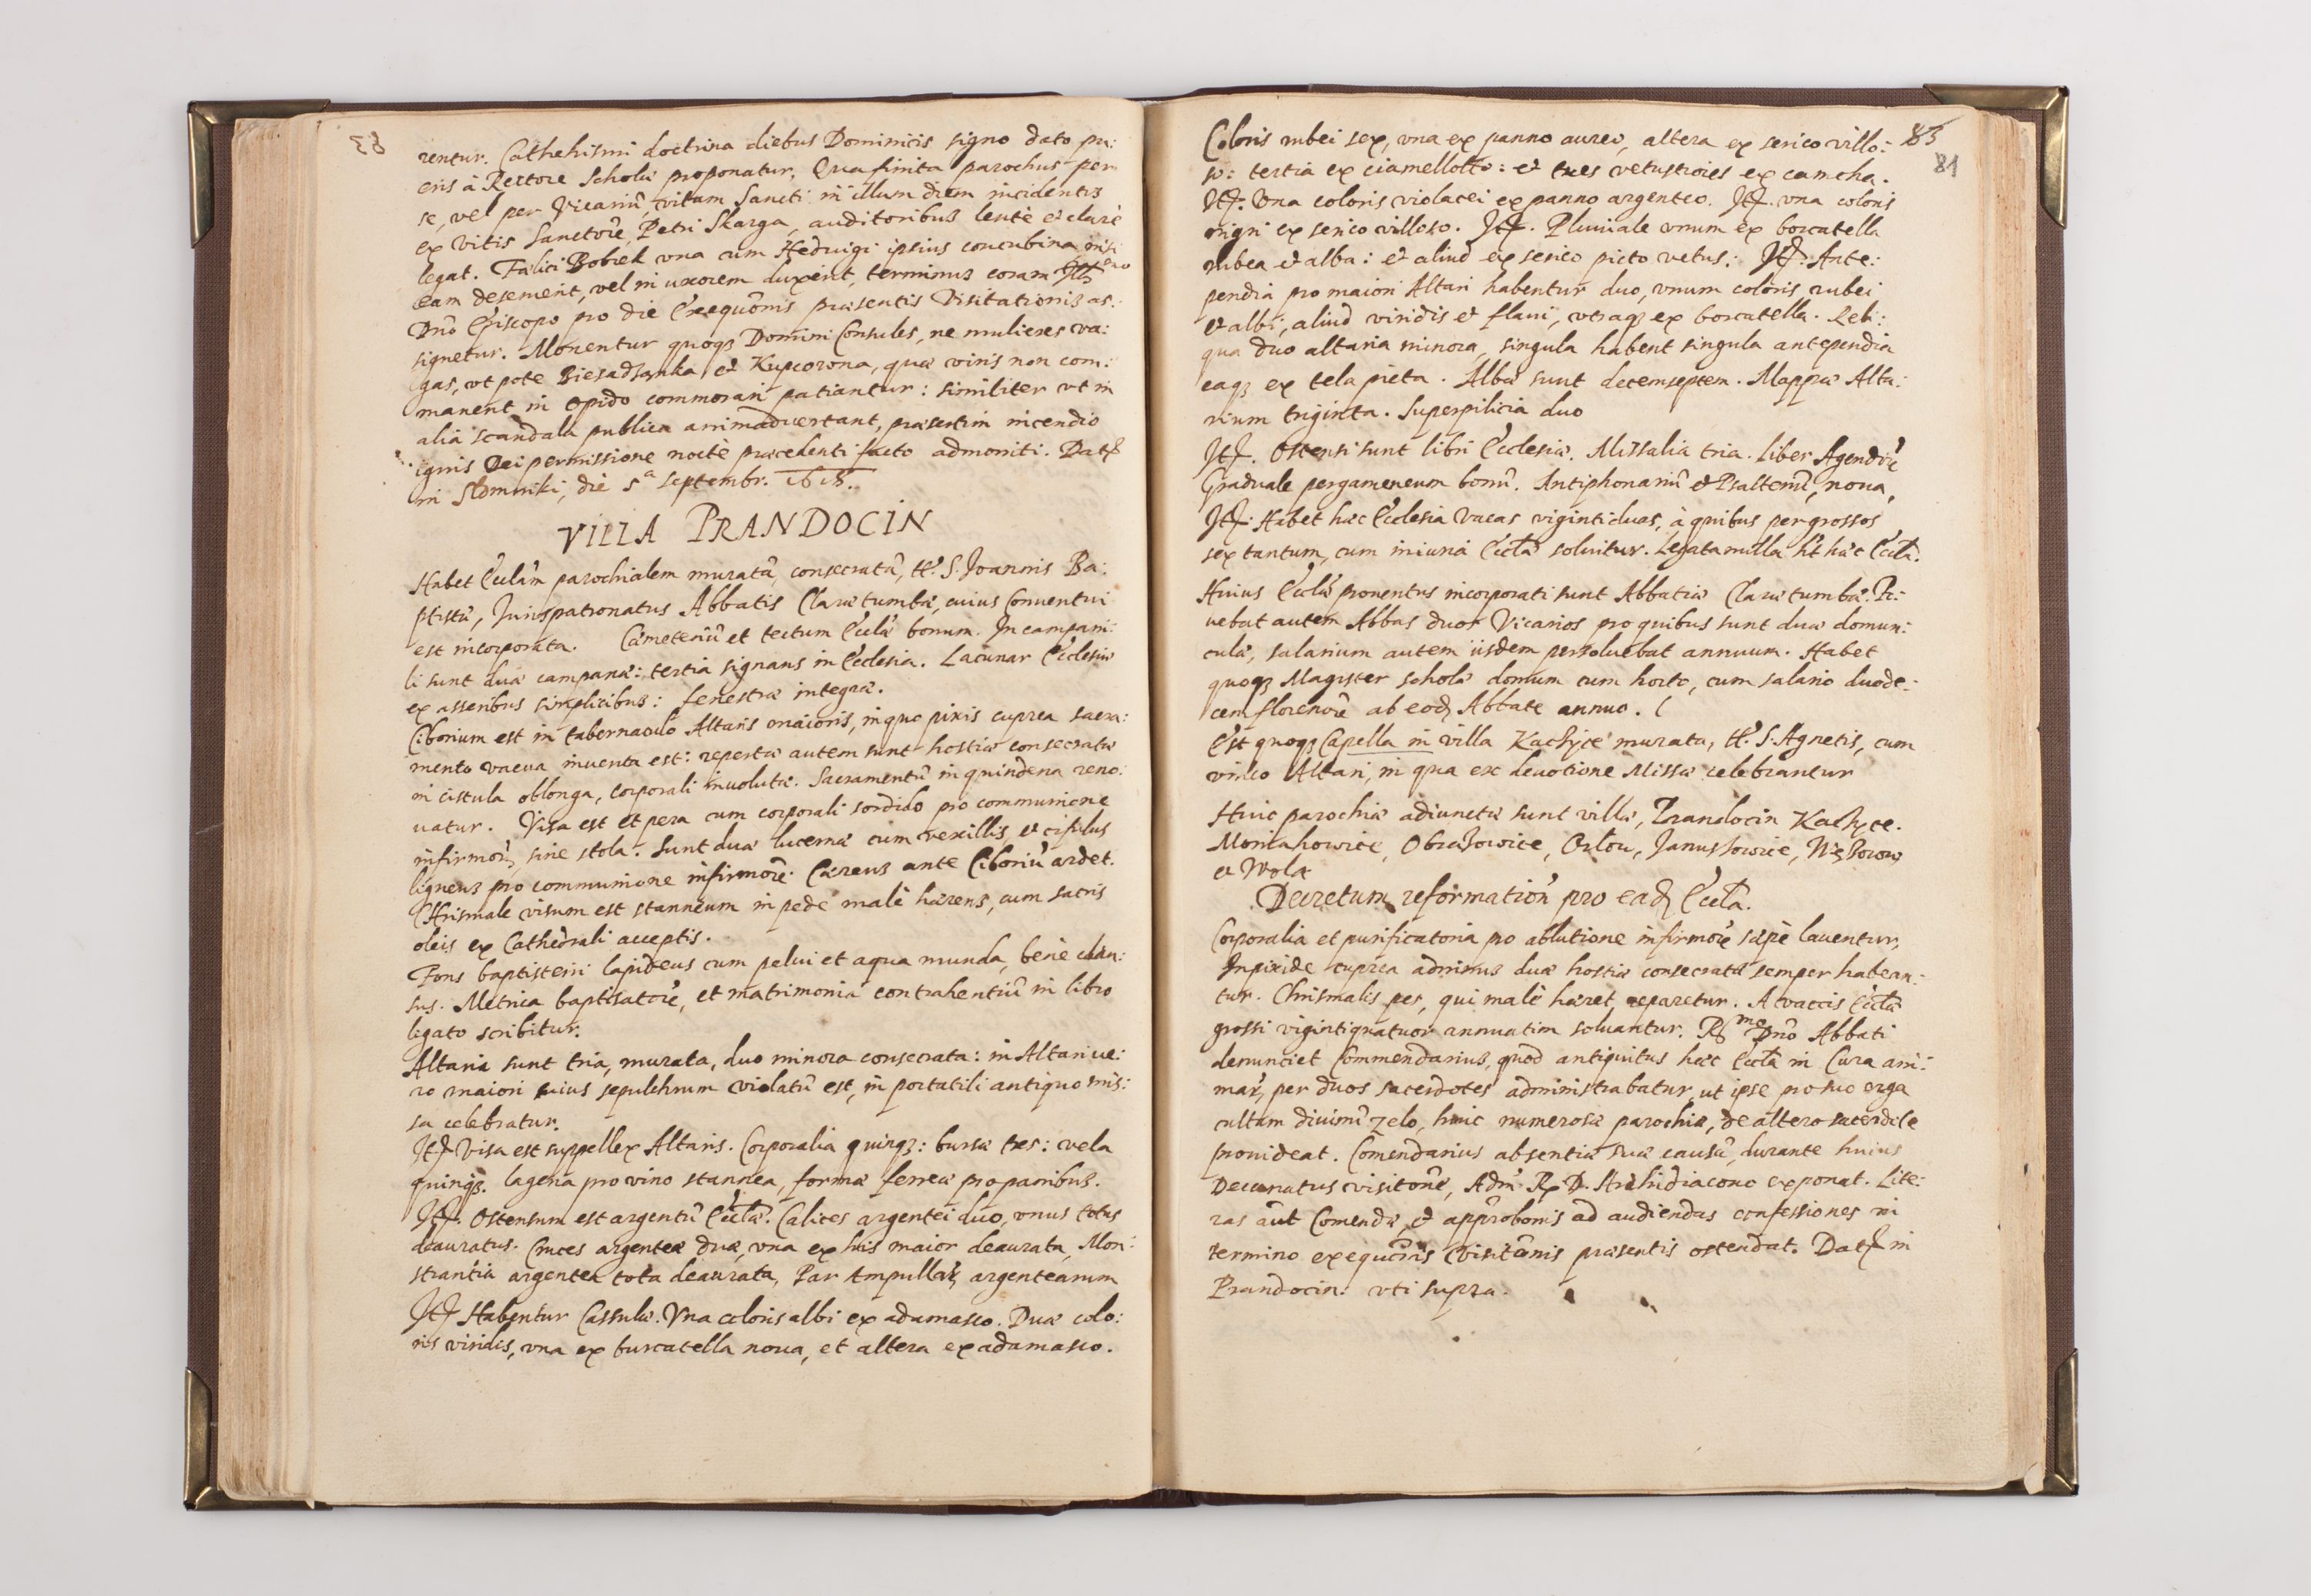 rentur. Cathehismi doctrina diebus Dominicis signo dato pu:
eris à Rectore Scholæ proponatur, Qua finita parochus per
se, vel per Vicariũ, vitam Sancti in illum diem incidentis
ex Vitis Sanctorũ, Petri Skarga, auditoribus lentè et clarè
legat. Fælici Bobrek vna cum Heduuigi ipsius concubina, nisi
eam deseruerit, vel in uxorem duxerit, terminus coram
Dño Episcopo pro die Exequõnis præsentis Visitationis as:
signetur. Monentur quoqȝ Domini Consules, ne mulieres va:
gas, vt pote Biesadsanka et Kupcorona, quæ viris non com:
manent in opido commorari patiantur: similiter vt in
alia scandala publica animaduertant, præsertim incendio
ignis Dei permissione nocte præcedenti facto admoniti. Datȝ
in Slomniki, die 5ª Septembr. 1618.
VILLA PRANDOCIN
Habet Ecclãm parochialem muratã, consecratã, tt. S. Joannis Ba:
ptistæ, Jurispatronatus Abbatis Claræ tumbæ, cuius Conuentui
est incorporata. Cæmeteriũ et tectum Ecclæ bonum. In campani:
li sunt duæ campanæ: tertia signans in Ecclesia. Lacunar Ecclesiæ
ex asseribus simplicibus: fenestræ integræ.
Ciborium est in tabernaculo Altaris maioris, in quo pixis cuprea sacra:
mento vacua inuenta est: repertæ autem sunt hostiæ consecratæ
in cistula oblonga, corporali inuolutæ. Sacramentũ in quindena reno:
uatur. Visa est et pera cum corporali sordido pro communione
infirmorũ, sine stola. Sunt duæ lucernæ cum vexillis, et cifulus
ligneus pro communione infirmorũ. Cæreus ante Ciboriũ ardet.
Chrismale visum est stanneum in pede malè hærens, cum sacris
oleis ex Cathedrali acceptis.
Fons baptisterii lapideus cum pelui et aqua munda, benè clau:
sus. Metrica baptisatorũ, et matrimonia contrahentiũ in libro
legato scribitur.
Altaria sunt tria, murata, duo minora consecrata: in Altari ve:
ro maiori cuius sepulchrum violatũ est, in portatili antiquo mis:
sa celebratur.
Itȝ Visa est suppellex Altaris. Corporalia quinqȝ: bursæ tres: vela
quinqȝ. lagena pro vino stannea, formæ ferreæ pro panibus.
Itȝ. Ostensum est argentũ Ecclæ. Calices argentei duo, vnus totus
deauratus. Cruces argenteæ duæ, vna ex his maior deaurata, Mon:
strantia argentea tota deaurata, Par Ampullarȝ argentearum
Itȝ Habentur Cassulæ. Vna coloris albi ex adamasco. Duæ colo:
ris viridis, vna ex burcatella noua, et altera ex adamasco.
83
81
Coloris rubei sex, vna ex panno aureo, altera ex serico villo:
so: tertia ex ciamellotto: et tres vetustiores ex camcha.
Itȝ. Vna coloris violacei ex panno argenteo. Itȝ. vna coloris
nigri ex serico villoso. Itȝ. Pluuiale vnum ex borcatella
rubea et alba: et aliud ex serico picto vetus: Itȝ. Ante:
pendia pro maiori Altari habentur duo, vnum coloris rubei
et albi, aliud viridis et flaui, vtraqȝ ex borcatella. Reli:
qua duo altaria minora, singula habent singula antependia
eaqȝ ex tela picta. Albæ sunt decemseptem. Mappæ Alta:
rium triginta. Superpilicia duo
Itȝ. Ostensi sunt libri Ecclesiæ. Missalia tria. Liber Agendorũ
Graduale pergameneum bonũ. Antiphonariũ et Psalteriũ, noua,
Itȝ. Habet hæc Ecclesia Vacas vigintiduas, à quibus per grossos
sex tantum, cum iniuria Ecclæ soluitur. Legata nulla ht hæc Eccla.
Huius Ecclæ prouentus incorporati sunt Abbatiæ Claræ tumbæ. Fo:
uebat autem Abbas duos Vicarios pro quibus sunt duæ domun:
culæ, salarium autem iisdem persoluebat annuum. Habet
quoqȝ Magister scholæ domum cum horto, cum salario duode:
cem florenorũ ab eodȝ Abbate annuo.
Est quoqȝ Capella in villa Kachyce murata, tt. S. Agnetis, cum
vnico Altari, in qua ex deuotione Missæ celebrantur
Huic parochiæ adiunctæ sunt villæ, Prandocin Kachyce.
Moniakowice, Obrazowice, Orlow, Janussowice,
et Wola
Decretum reformationȝ pro eadȝ Eccla.
Corporalia et purificatoria pro ablutione infirmorũ sæpè lauentur,
In pixide cuprea adminus duæ hostiæ consecratæ semper habean:
tur. Chrismalis pes, qui malè hæret, reparetur. A vaccis Ecclæ
grossi vigintiquatuor annuatim soluantur. Rmo Dño Abbati
denunciet Commendarius, quod antiquitus hæc Eccla in Cura ani:
marȝ, per duos sacerdotes administrabatur, ut ipse pro suo erga
cultum diuinũ zelo, huic numerosæ parochiæ, de altero sacerdote
prouideat. Comendarius absentiæ suæ causã, durante huius
Decanatus visitõne, Adm R. D. Archidiacono exponat. Lite:
ras aũt Comendæ, et approbõnis ad audiendas confessiones in
termino exequõnis Visitõnis præsentis ostendat. Datȝ in
Prandocin: vti supra.